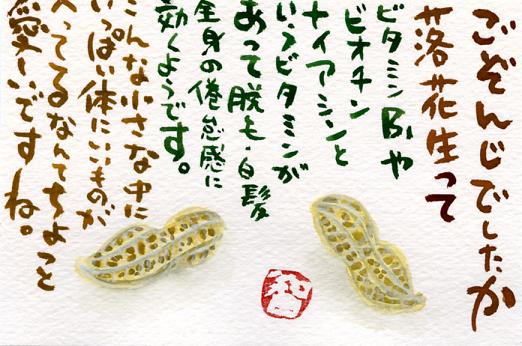 ごぞんじでしたか
落花生って
ビタミンB1や
ビオチン
ナイアシンと
いうビタミンが
あって脱毛・白髪
全身の倦怠感に
効くようです。
こんな小さな中に
いっぱい体にいいものが
入ってるなんてちょっと
愛しいですね。